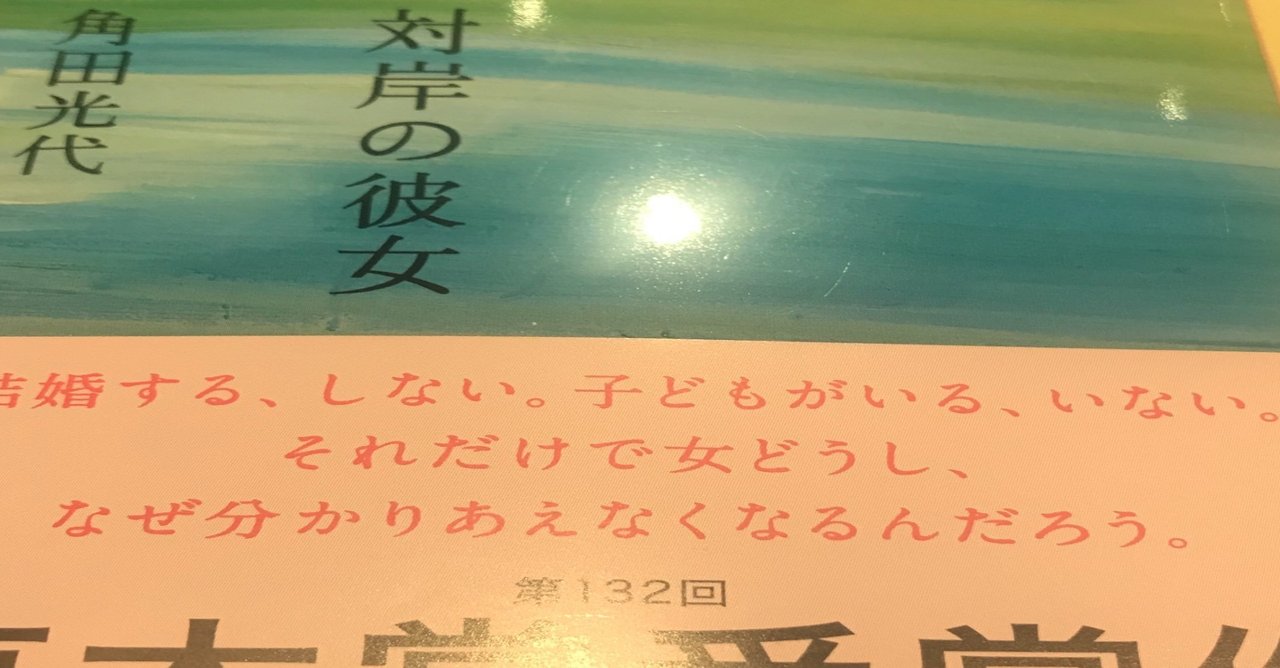 対岸の彼女
角田光代
結婚する、しない。子どもがいる、いない。
それだけで女どうし、
なぜ分かりあえなくなるんだろう。
第132回